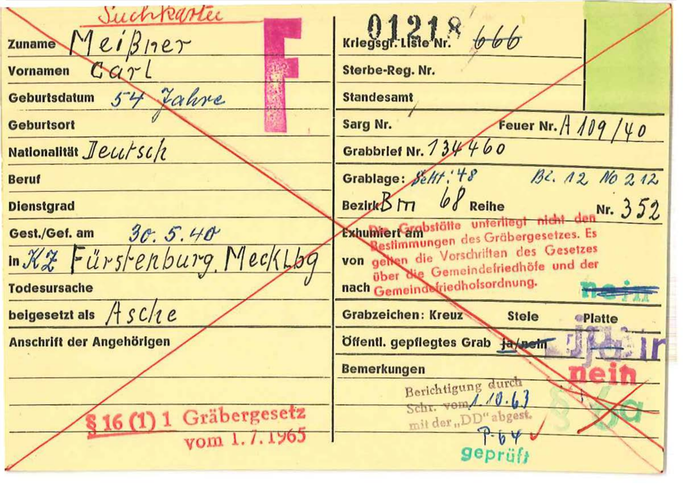 Suchkartei
Zuname Meißner
Vornamen Carl
Geburtsdatum 54 Jahre
Geburtsort
Nationalität Deutsch
Beruf
Dienstgrad
Gest./Gef. am 30.5.40
in KZ Fürstenburg. Mecklbg
Todesursache
beigesetzt als Asche
Anschrift der Angehörigen
§ 16 (1) 1 Gräbergesetz
vom 1.7.1965
F
01218
Kriegsgr. Liste Nr. 666
Sterbe-Reg. Nr.
Standesamt
Sarg Nr. Feuer Nr. A 109/40
Grabbrief Nr. 134460
Grablage: 48 Bl. 12 No 212
Bezirk Bm 68 Reihe Nr. 352
Exhumiert am
von
nach
Die Grabstätte unterliegt nicht den
Bestimmungen des Gräbergesetzes. Es
gelten die Vorschriften des Gesetzes
über die Gemeindefriedhöfe und der
Gemeindefriedhofsordnung.
nein
Grabzeichen: Kreuz Stele Platte
Öffentl. gepflegtes Grab ja/nein
nein
Bemerkungen
Berichtigung durch
Schr. vom 1.10.63
mit der „DD" abgest.
P. 64
geprüft
§ 6a